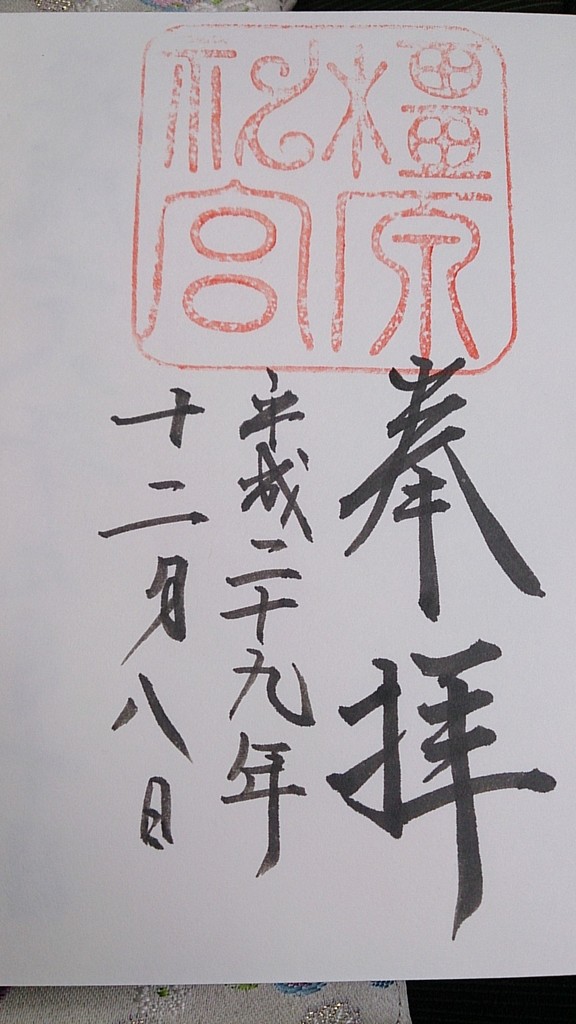 橿原
神宮
奉拝
平成二十九年
十二月八日